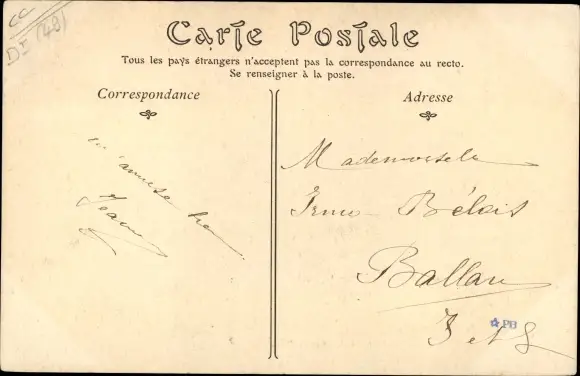 CC
Dt (49)
Carte Postale
Tous les pays étrangers n'acceptent pas la correspondance au recto.
Se renseigner à la poste.
Correspondance
m'amuse bien
Jeanne
Adresse
Mademoiselle
Irma Bélois
Ballan
I et L
PB